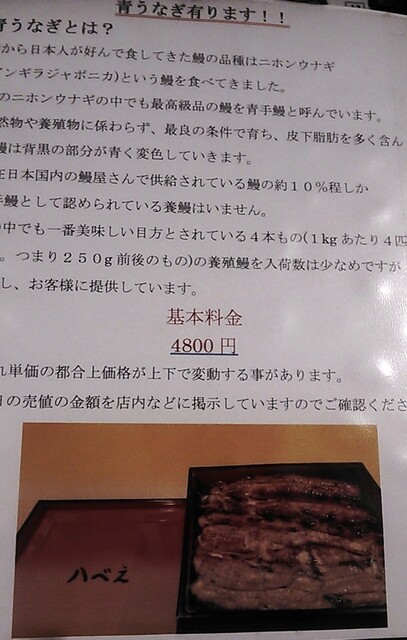 青うなぎ有ります！！
青うなぎとは？
から日本人が好んで食してきた鰻の品種はニホンウナギ
ンギラジャポニカ)という鰻を食べてきました。
のニホンウナギの中でも最高級品の鰻を青手鰻と呼んでいます。
然物や養殖物に係わらず、最良の条件で育ち、皮下脂肪を多く含ん
鰻は背黒の部分が青く変色していきます。
在日本国内の鰻屋さんで供給されている鰻の約１０%程しか
手鰻として認められている養鰻はいません。
中でも一番美味しい目方とされている４本もの(１kgあたり４匹
。つまり２５０g前後のもの)の養殖鰻を入荷数は少なめですが
し、お客様に提供しています。
基本料金
4800 円
れ単価の都合上価格が上下で変動する事があります。
日の売値の金額を店内などに掲示していますのでご確認くださ
八べえ